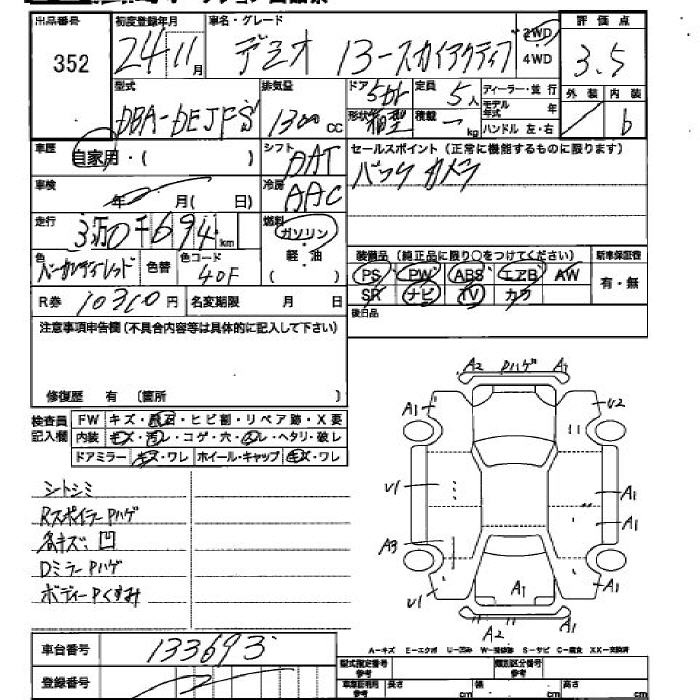 出品番号 初度登録年月 車名・グレード 評価点
352 24 11月 デミオ 13-スカイアクティブ 2WD 4WD 3.5
型式 排気量 ドア 定員 ディーラー・並行 外装 内装
DBA-DEJFS 1300 CC 5dr 5人 モデル年式 年 b
形状 箱型 積載 kg ハンドル 左・右
車歴 自家用・( ) シフト DAT セールスポイント (正常に機能するものに限ります)
バックカメラ
車検 年 月( 日) 冷房 AAC
走行 3万0千694km 燃料 ガソリン・軽・油 ( )
装備品 (純正品に限り○をつけてください) 新車保証書
色 バーガンディレッド 色替 色コード 40F
PS PW ABS エアB AW 有・無
SR ナビ TV カワ
R券 10310円 名変期限 月 日
後日品
注意事項申告欄 (不具合内容等は具体的に記入して下さい)
修復歴 有 〔箇所 〕
検査員記入欄 FW キズ・飛石・ヒビ割・リペア跡・X要
内装 キズ・汚レ・コゲ・穴・スレ・ヘタリ・破レ
ドアミラー キズ・ワレ ホイール・キャップ キズ・ワレ
シートシミ
Rスポイラー Pハゲ
各キズ、凹
Dミラー Pハゲ
ボディー Pくすみ
A2 Pハゲ A1
A1 U2
U1 A1
A1
A3
U1 A1 A1
A2 A1
A-キズ E-エクボ U-凹み W-補修跡 S-サビ C-腐食 XX-交換済
車台番号 133693
登録番号
型式指定番号 参考 類別区分番号 参考
車庫証明用 参考 長さ cm 幅 cm 高さ cm